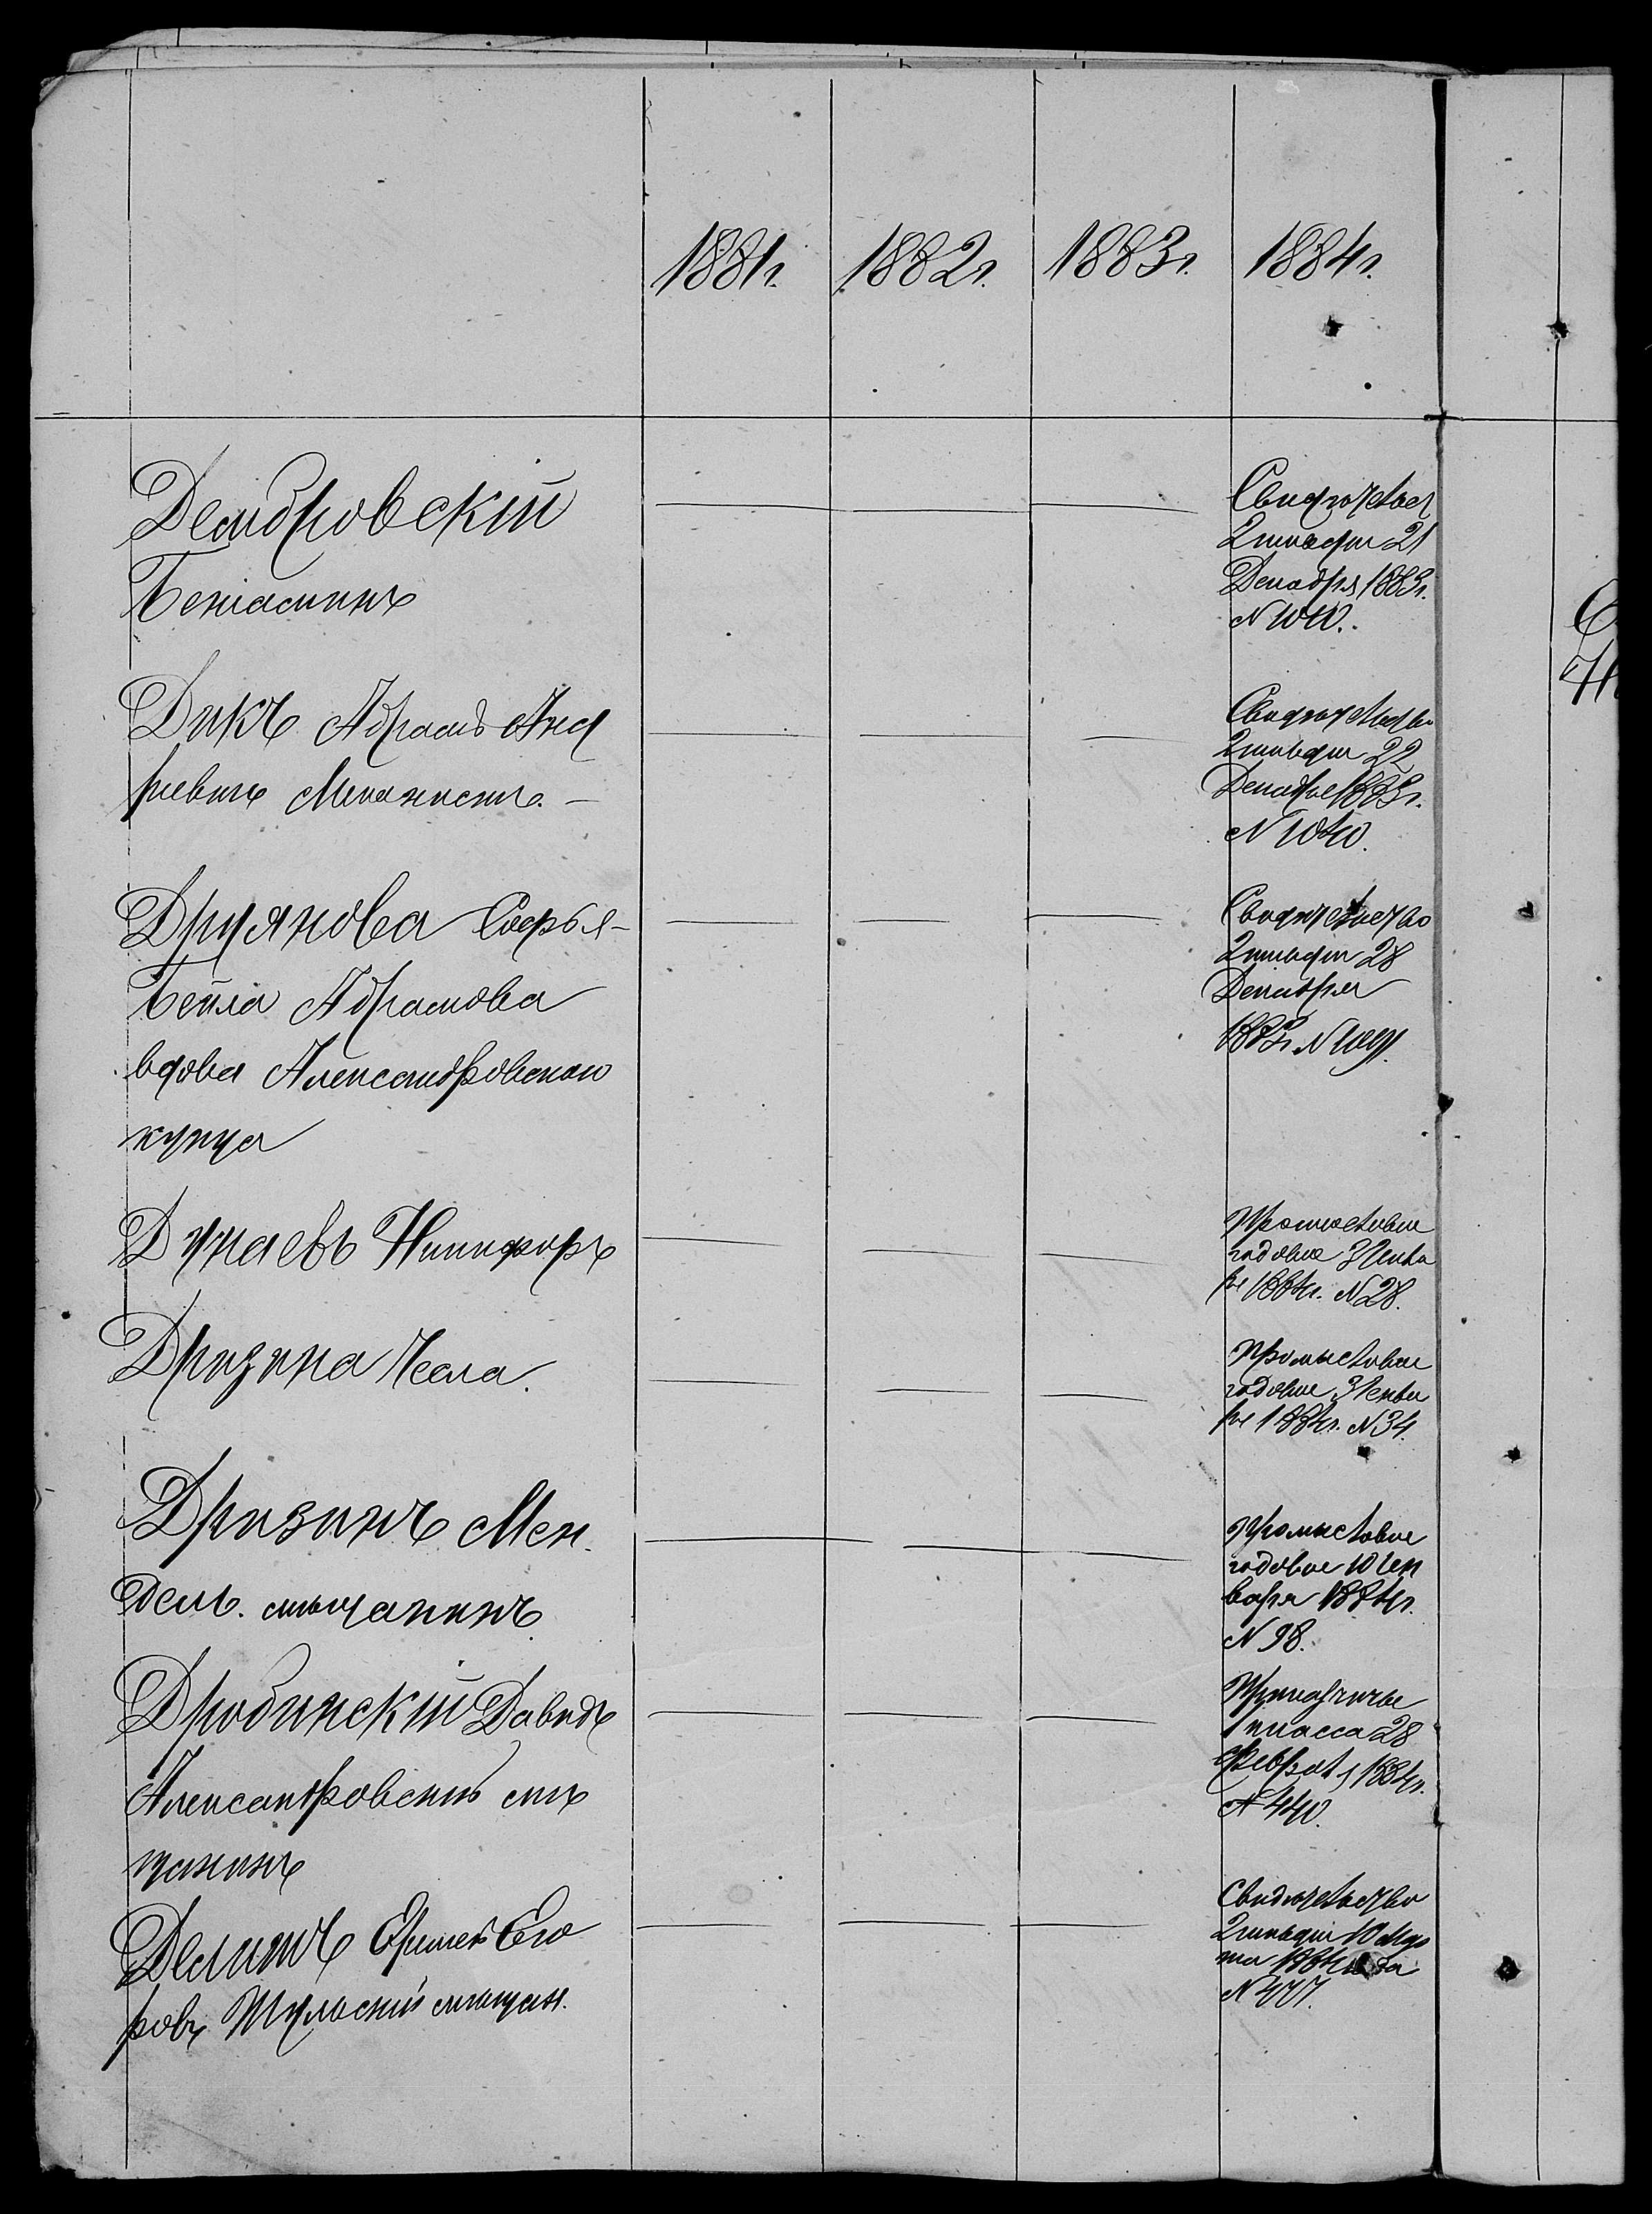 1881г. 1882г. 1883г. 1884г.
Дембровскій
Беніаминъ
Свидѣтельст
2 гильдіи 21
Декабря 1883г.
N
Дикъ Абрамъ Анд
реевичъ Механистъ. —
Свидѣтельство
2 гильдіи 22
Декабря 1883г.
N 1040.
Друянова Софья-
Бейла Абрамова
вдова Александровскаго
купца
Свидѣтельство
2 гильдіи 28
Декабря
1883г. N
Дунаевъ Никифоръ
Промысловое
годовое 3 Генва
ря 1884г. N 28.
Дризина Чеспа.
Промысловое
годовое 3 Генва
ря 1884г. N 34.
Дризинъ Мен.
дель. мѣщанинъ
Промысловое
годовое 10 Ген
варя 1884г.
N 98.
Дробинскій Давидъ
Александровскій мѣ
щанинъ
Прикащичье
1 класса 28
Февраля 1884г.
N 440.
Ефимъ Его
ровъ Тульскій мѣщан.
Свидѣтельство
2 гильдіи 10 Мар
та 1884 года
N 477.